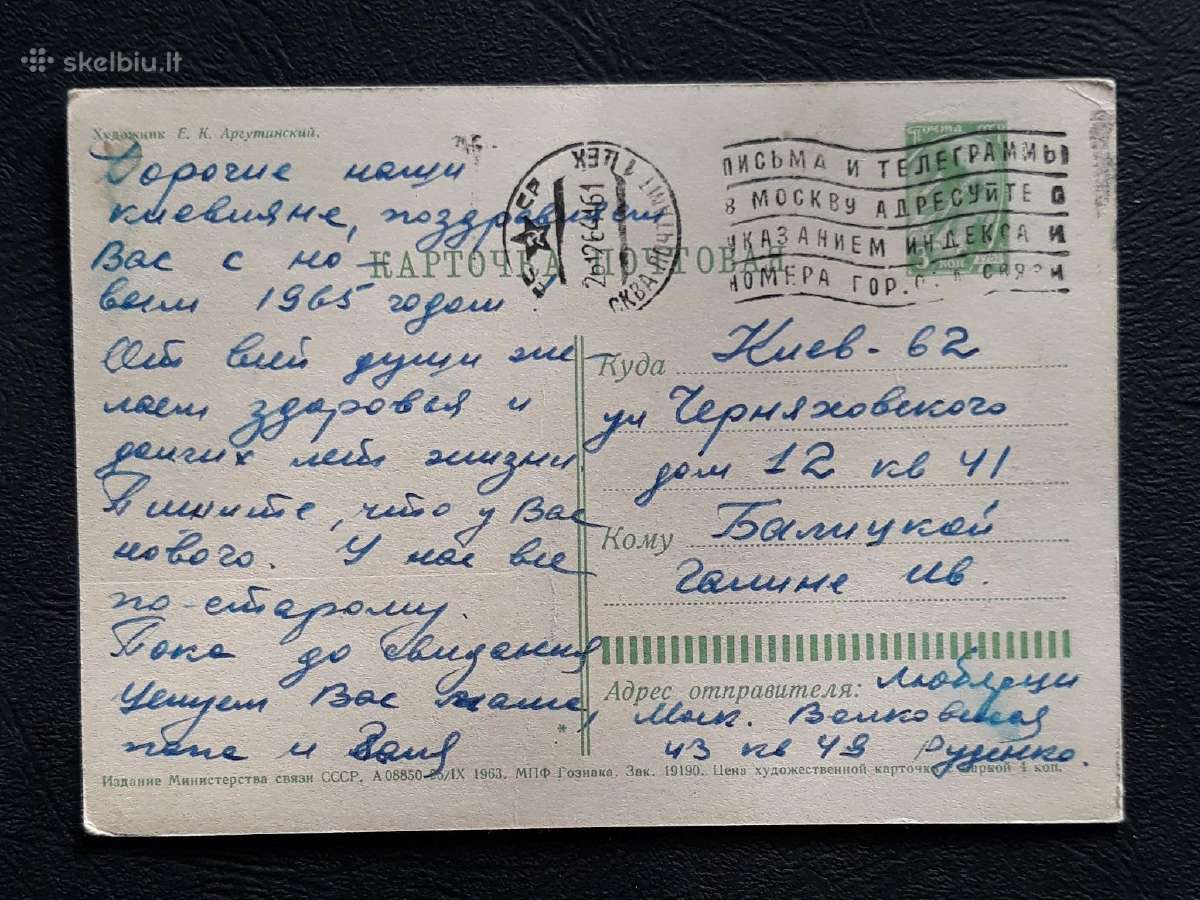 skelbiu.lt
Художник Е. К. Аргутинский.
Дорогие наши
киевляне, поздравляем
Вас с но-
вым 1965 годом!
От всей души же-
лаем здоровья и
долгих лет жизни.
Пишите, что у Вас
нового. У нас все
по-старому.
Пока до свидания
Целуем Вас мама,
папа и Валя
КАРТОЧКА ПОЧТОВАЯ
СССР
МОСКВА ПОЧТАМТ 1 ЦЕХ
261264 161
ПИСЬМА И ТЕЛЕГРАММЫ
В МОСКВУ АДРЕСУЙТЕ С
УКАЗАНИЕМ ИНДЕКСА И
НОМЕРА ГОР. СВЯЗИ
ПОЧТА СССР
3 КОП 1961
Куда Киев-62
ул Черняховского
дом 12 кв 41
Кому Балицкой
Галине Ив.
Адрес отправителя: Люберцы
Моск. Волковская
43 кв 49 Руденко.
*
Издание Министерства связи СССР. А 08850 25/IX 1963. МПФ Гознака. Зак. 19190. Цена художественной карточки с маркой 4 коп.